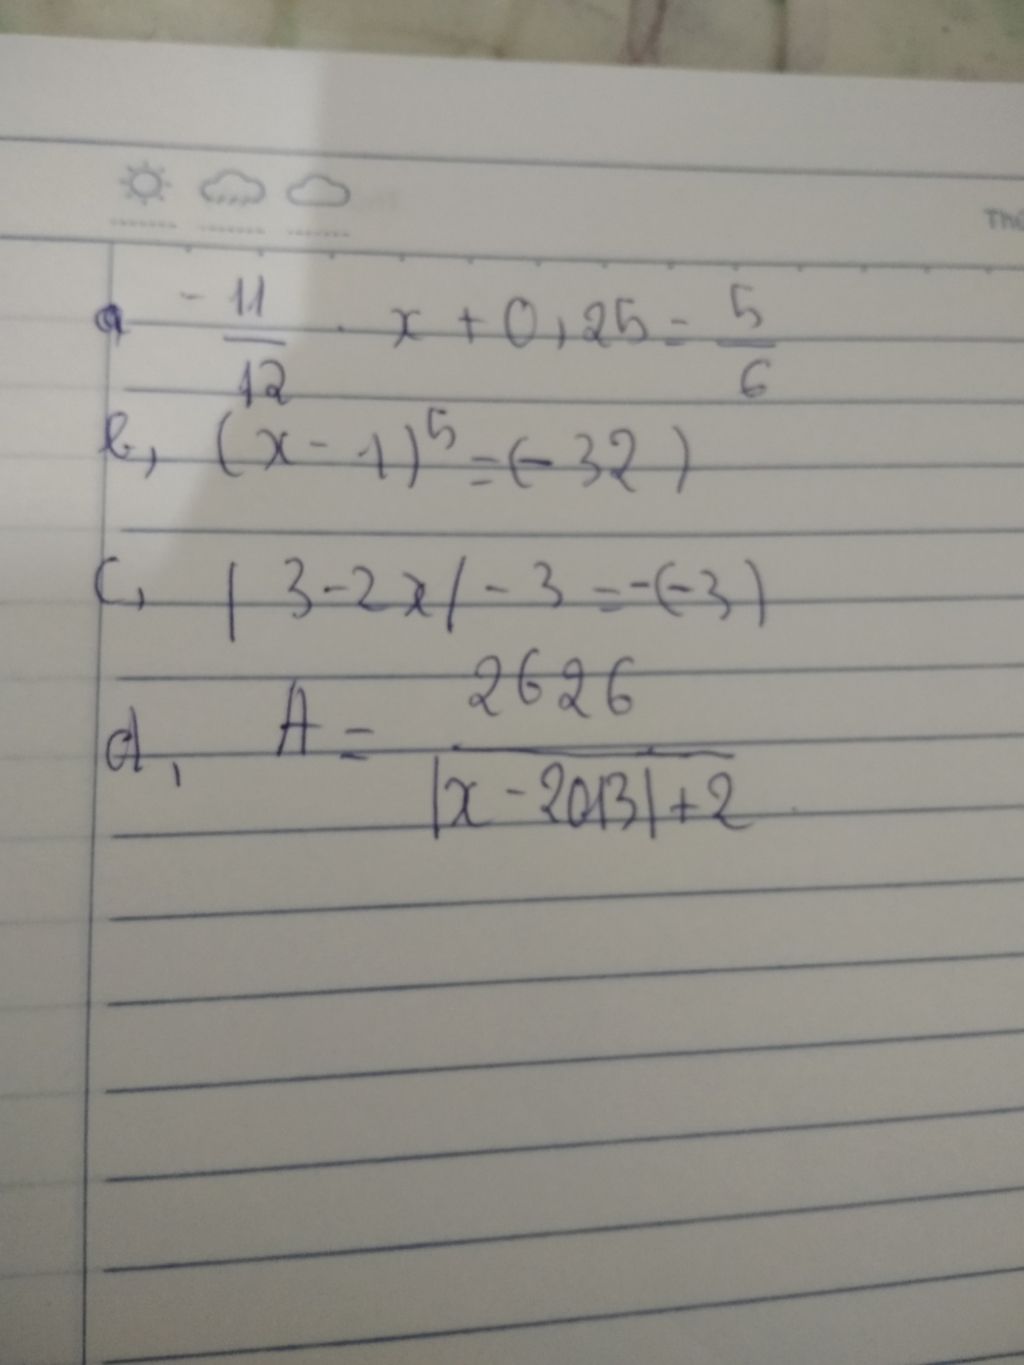 Thứ
a -11/12 . x + 0,25 = 5/6
b, (x - 1)^5 = (-32)
c, |3 - 2x| - 3 = -(-3)
d, A = 2626/(|x - 2013| + 2)